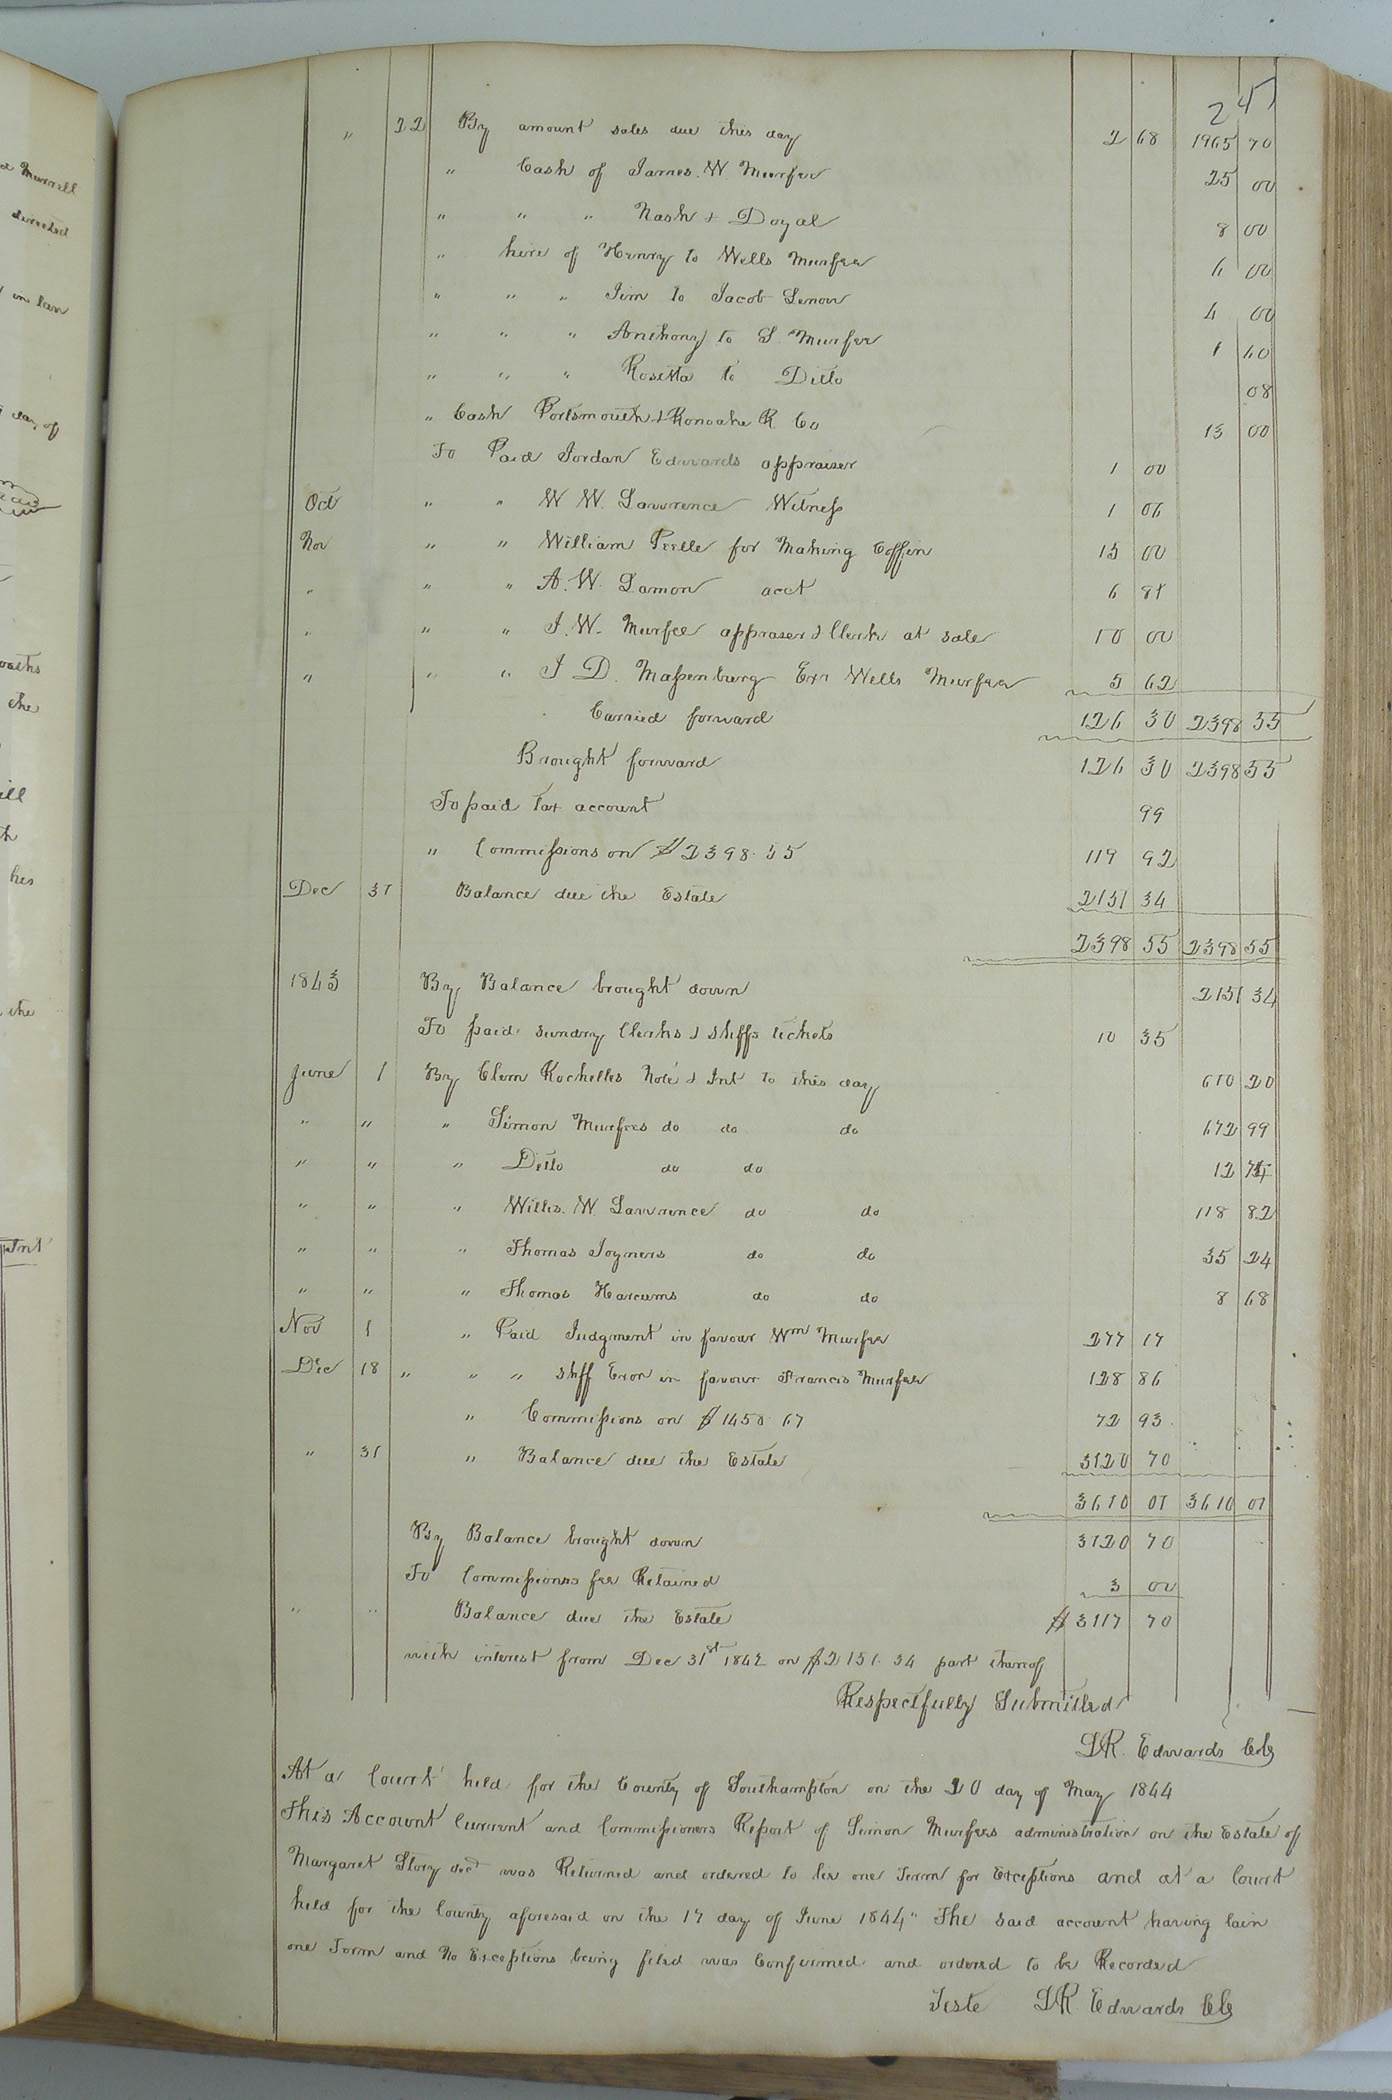 245
" 22 By amount sales due this day 2 68 1965 70
" Cash of James. W Murfee 25 00
" " " Nash & Doyal 8 00
" hire of Henry to Wells Murfee 6 00
" " " Jim to Jacob Lenow 4 00
" " " Anthony to S. Murfee 1 60
" " " Rosetta to Ditto 08
" Cash Portsmouth & Ronoake R Co 13 00
To Paid Jordan Edwards appraiser 1 00
Oct " " W W. Lawrence Witness 1 06
Nov " " William for Making Coffin 15 00
" " " A. W. Lamon acct 6 81
" " " J. W. Murfee appraser & Clerk at sale 10 00
" " " J D. Massenburg Exr Wells Murfee 5 62
Carried forward 126 30 2398 55
Brought forward 126 30 2398 55
To paid tax account 99
" Commissions on $2398.55 119 92
Dec 31 Balance due the Estate 2151 34
2398 55 2398 55
1843 By Balance brought down 2151 34
To paid sundry Clerks & shffs tickets 10 35
June 1 By Clem Rochelles Note & Int to this day 610 20
" " " Simon Murfees do do do 672 99
" " " Ditto do do 12
" " " Willis. W. Lawrence do do 118 82
" " " Thomas Joyners do do 35 24
" " " Thomas Harcums do do 8 68
Nov 1 " Paid Judgment in favour Wm Murfee 277 17
Dec 18 " " " shff Exon in favour Francis Murfee 128 86
" Commissions on $1458.67 72 93
" 31 " Balance due the Estate 3120 70
3610 01 3610 01
By Balance brought down 3120 70
To Commissioners fee Retained 3 00
" " Balance due the Estate $3117 70
with interest from Dec 31st 1842 on $2151.34 part thereof
Respectfully Submitted
LR. Edwards Clk
At a Court held for the County of Southampton on the 20 day of May 1844
This Account Current and Commissioners Report of Simon Murfees administration on the Estate of
Margaret Story decd was Returned and ordered to lie one Term for Exceptions and at a Court
held for the County aforesaid on the 17 day of June 1844" The said account having lain
one Term and No Exceptions being filed was Confirmed and ordered to be Recorded
Teste LR. Edwards Clk